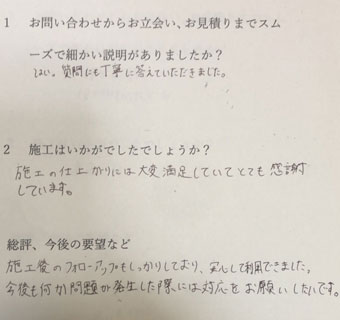 1 お問い合わせからお立会い、お見積りまでスム
ーズで細かい説明がありましたか？
はい。質問にも丁寧に答えていただきました。
2 施工はいかがでしたでしょうか？
施工の仕上がりには大変満足していてとても感謝
しています。
総評、今後の要望など
施工後のフォローアップもしっかりしており、安心して利用できました。
今後も何か問題が発生した際には対応をお願いしたいです。